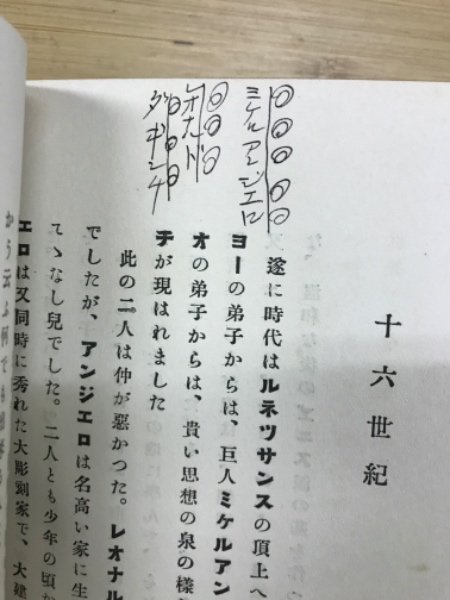 ミケロアンジエロ
レオナルド
ダギンチ
十六世紀
遂に時代はルネツサンスの頂上へ
ヨーの弟子からは、巨人ミケルアン
オの弟子からは、貴い思想の泉の様
チが現はれました
此の二人は仲が惡かつた。レオナル
でしたが、アンジエロは名高い家に生
てゝなし兒でした。二人とも少年の頃か
エロは又同時に秀れた大彫刻家で、大建